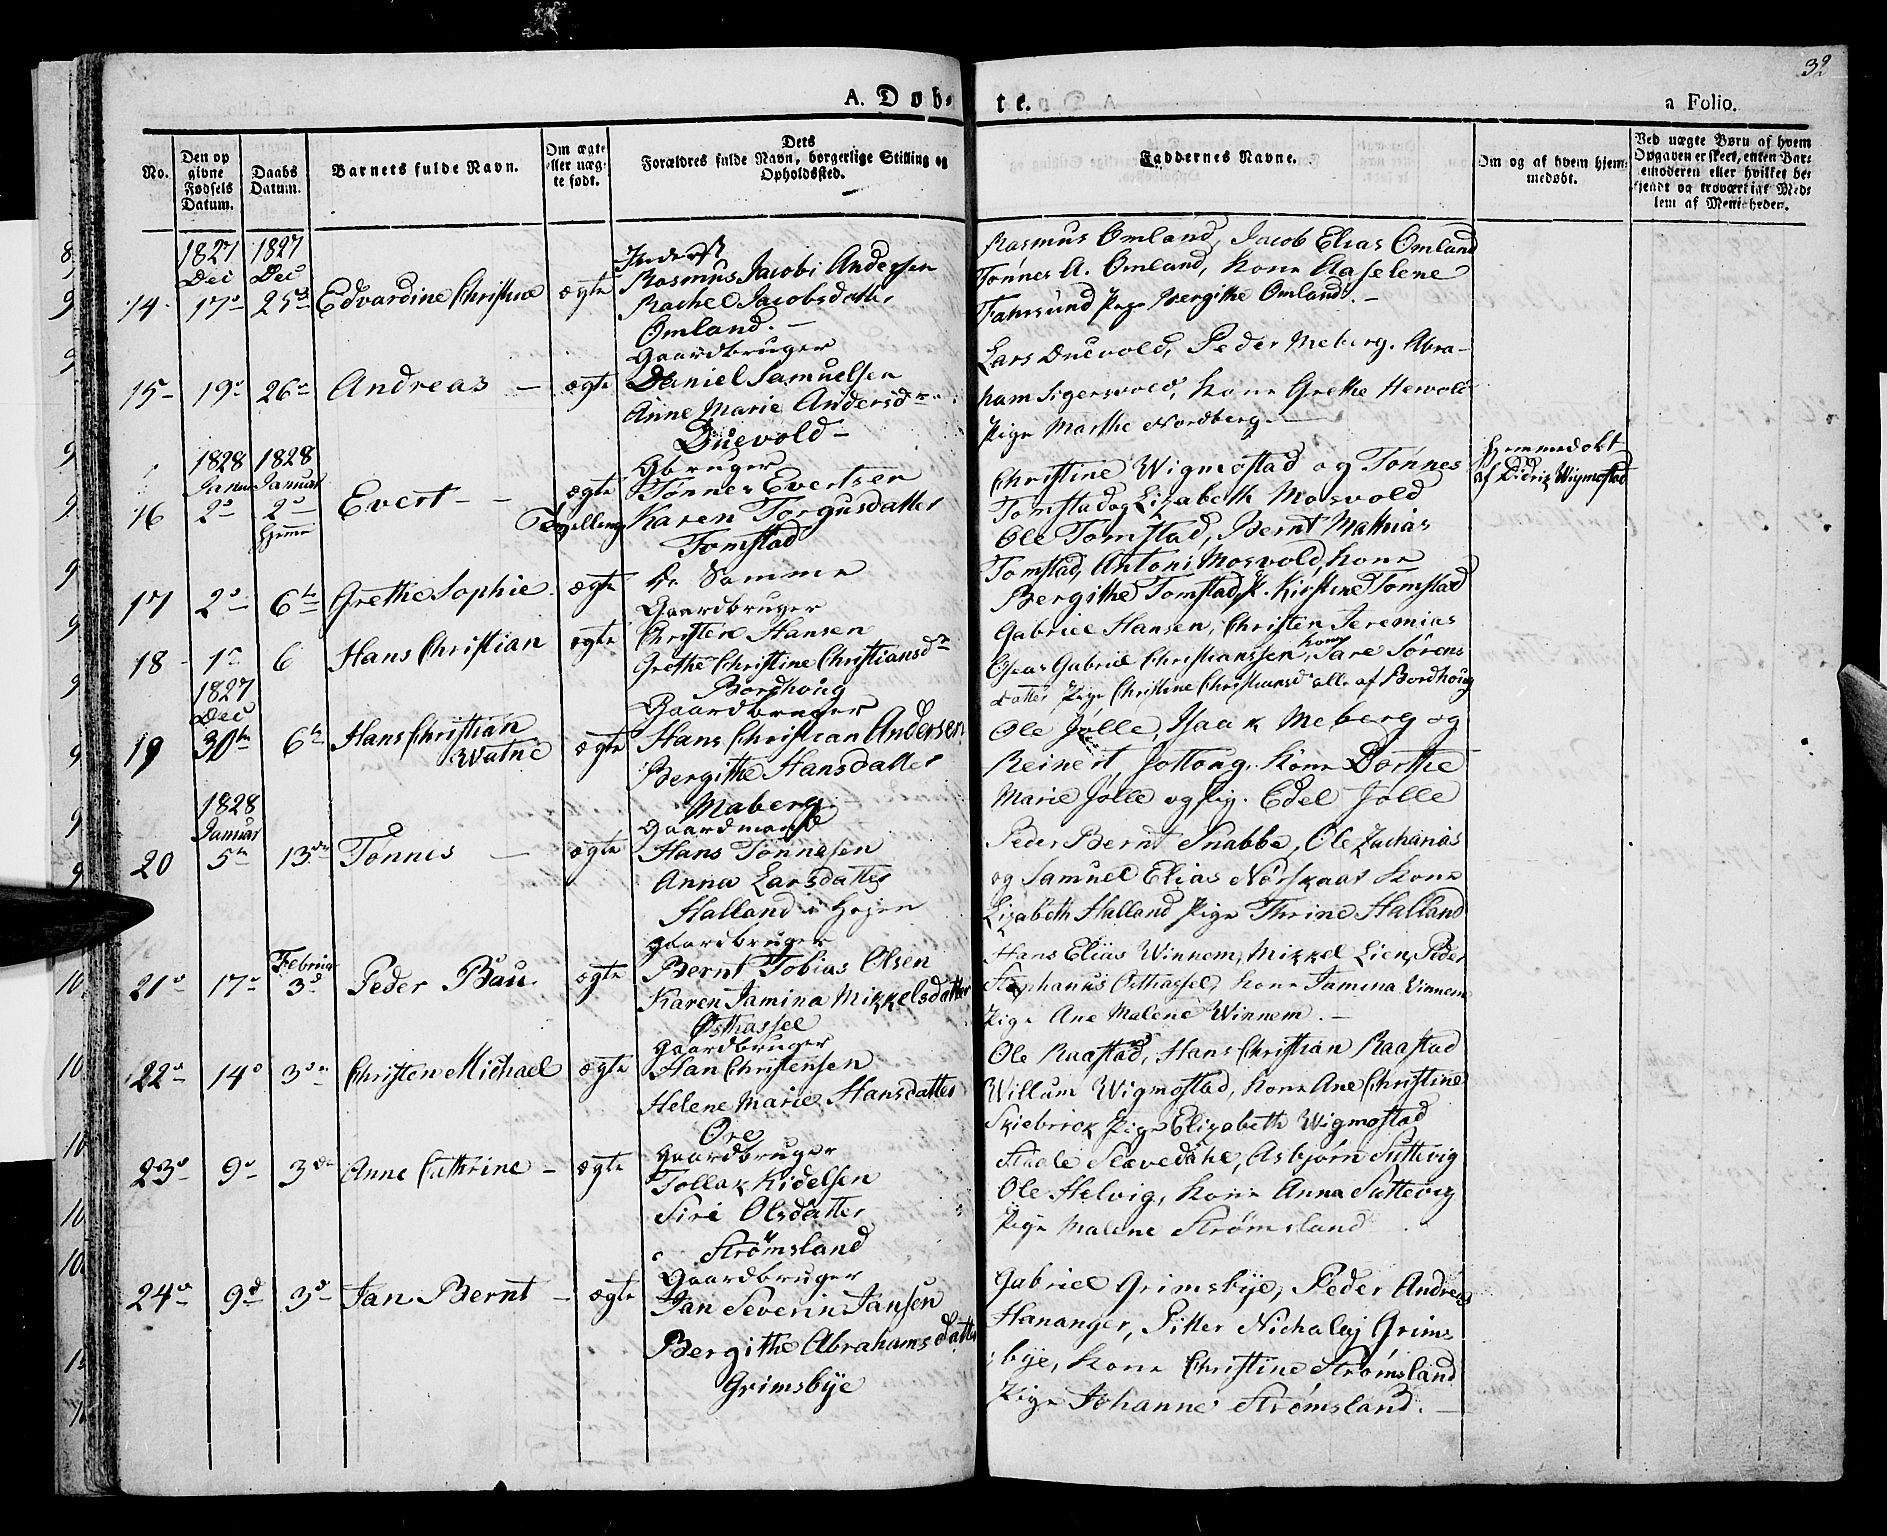 32
A. Døb-
te.
a Folio.
No.
Den op
givne
Fødsels
Datum.
Daabs
Datum.
Barnets fulde Navn.
Om ægte
eller uæg-
te født.
Dets
Forældres fulde Navn, borgerlige Stilling og
Opholdssted.
Faddernes Navne.
Om og af hvem hjem-
medøbt.
Ved uægte Børn af hvem
Opgaven er skeet, enten Bar-
nemoderen eller hvilket be-
kjendt og troværdigt Med-
lem af Menigheden.
1827 1827
Dec Dec
14. 17de 25de Edvardine Christine ægte
Inderst
Rasmus Jacobi Andersen
Rachel Jacobsdatter
Omland. -
Rasmus Omland, Jacob Elias Omland
Tønnes A. Omland, Kone Aaselene
Farsund Pige Bergithe Omland. -
15 19 26 Andreas - ægte
Gaardbruger
Daniel Samuelsen
Anne Marie Andersdr
Duevold -
Lars Duevold, Peder Meberg. Abra-
ham Sigersvold, Kone Grethe Hervold
Pige Marthe Nordberg. -
1828 1828
Januar Januar
16 2 2 Hjemme Evert - - ægte Tvelling
Gbruger
Tønnes Evertsen
Karen Torgusdatter
Tomstad
Christine Wigmostad og Tønnes
Tomstad og Lizabeth Mosvold
Hjemmedøbt
af Didrik Wigmostad
17 2 6te Grethe Sophie. ægte
de Samme
Ole Tomstad, Bernt Mathias
Tomstad, Antoni Mosvold, Kone
Bergithe Tomstad, P. Kirstine Tomstad
18 1 6 Hans Christian ægte
Gaardbruger
Christen Hansen
Grethe Christine Christiansdr
Bordhoug
Gabriel Hansen, Christen Jeremias
Gabriel Christianssen, Kone Tare Sørens
datter Pige Christine Christiansd alle af Bordhoug
1827
Dec
19 30te 6te Hans Christian
Watne ægte
Gaardbruger
Hans Christian Andersen
Bergithe Hansdatter
Maberg
Ole Jølle, Isaak Meberg og
Reinert Jottong, Kone Dorthe
Marie Jølle og Pig. Edel Jølle
1828
Januar
20 5te 13de Tønnes - ægte
Gaardmand
Hans Tønnesen
Anna Larsdatter
Halland i Hegen
Peder Bernt Snabbe, Ole Zacharias
og Samuel Elias Nørskaar Kone
Lizabeth Halland Pige Thrine Halland
Februar
21 17 3 Peder Bau. ægte
Gaardbruger
Bernt Tobias Olsen
Karen Jamina Mikkelsdatter
Østhassel
Hans Elias Winnem, Mikkel Lien, Peder
Stephanus Østhassel, Kone Jamina Vinnem
Pige Ane Malene Winnem. -
22 14 3 Christen Michael ægte
Gaardbruger
Han Christensen
Helene Marie Hansdatter
Øre
Ole Raastad, Hans Christian Raastad
Willum Wigmostad, Kone Ane Christine
Skiebrok Pige Elizabeth Wigmostad
23 9 3 Anne Cathrine - ægte
Gaardbruger
Tollak Kidelsen
Siri Olsdatter
Strømsland
Slævedahl, Asbjørn Sættevig
Ole Helvig, Kone Anna Sættevig
Pige Malene Strømsland
24 9 3 Jan Bernt - ægte
Gaardbruger
Jan Severin Jansen
Bergithe Abrahamsdatter
Grimsbye
Gabriel Grimsbye, Peder Andreas
Hananger, Pitter Nicholay Grims
bye, Kone Christine Strømsland
Pige Johanne Strømsland. -